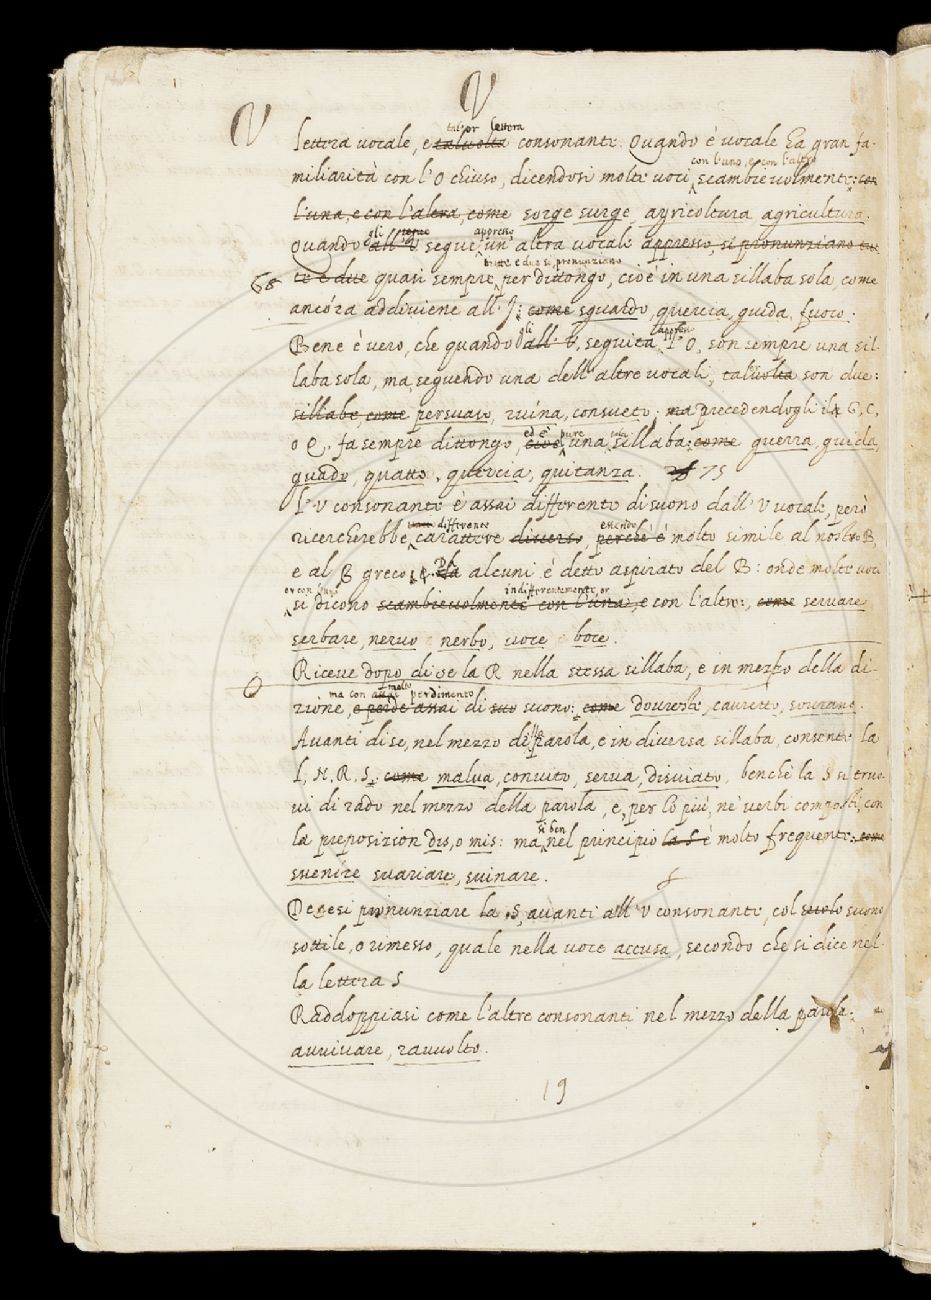 V
V
talor lettora
lettera vocale, e talvolta consonante. Quando è vocale ha gran fa-
con l'uno, e con l'altro
miliarità con l'O chiuso, dicendosi molte voci scambievolmente: con
l'una, e con l'altra, come sorge surge, agricoltura agricultura.
gli segue appresso
Quando all' V segue un' altra vocale appresso, si pronunziano tut-
tutte e due si pronunziano
68 te e due quasi sempre per dittongo, cioè in una sillaba sola, come
ancóra addiviene all' J: come sguardo, quercia, guida, fuoco.
gli appresso
Bene è vero, che quando all' V seguita l' O, son sempre una sil-
laba sola, ma seguendo una dell' altre vocali, talvolta son due:
sillabe, come persuaso, ruina, consueto; ma precedendogli il G, C,
ed è pure sola
o Q. fa sempre dittongo, cioè una sillaba: come guerra, guida,
guado, quatto, quercia, quitanza. 75
L'V consonante è assai differente di suono dall' V vocale, però
differente essendo
ricercherebbe carattere diverso perchè è molto simile al nostro B,
e al β greco, e da alcuni è detto aspirato del B: onde molte voci
or con l'uno indifferentemente, or
si dicono scambievolmente con l'una, e con l'altro:, come servare
serbare, nervo nerbo, voce boce.
Riceve dopo di se la R nella stessa sillaba, e in mezzo della di-
ma con molto perdimento
zione, e perde assai di suo suono: come dovresti, cavretto, sovrano.
Avanti di se, nel mezzo della parola, e in diversa sillaba, consente la
L, N, R, S, come malva, convito, serva, disviato, benchè la S si truo-
vi di rado nel mezzo della parola, e, per lo più, ne' verbi composti, con
si ben
la preposizion dis, o mis: ma nel principio la S è molto frequente: come
svenire svariare, svinare.
Decesi pronunziare la S, avanti all' V consonante, col secolo suono
sottile, o rimesso, quale nella voce accusa, secondo che si dice nel-
la lettera S
Raddoppiasi come l'altre consonanti nel mezzo della parola.
avvivare, ravvolto.
19